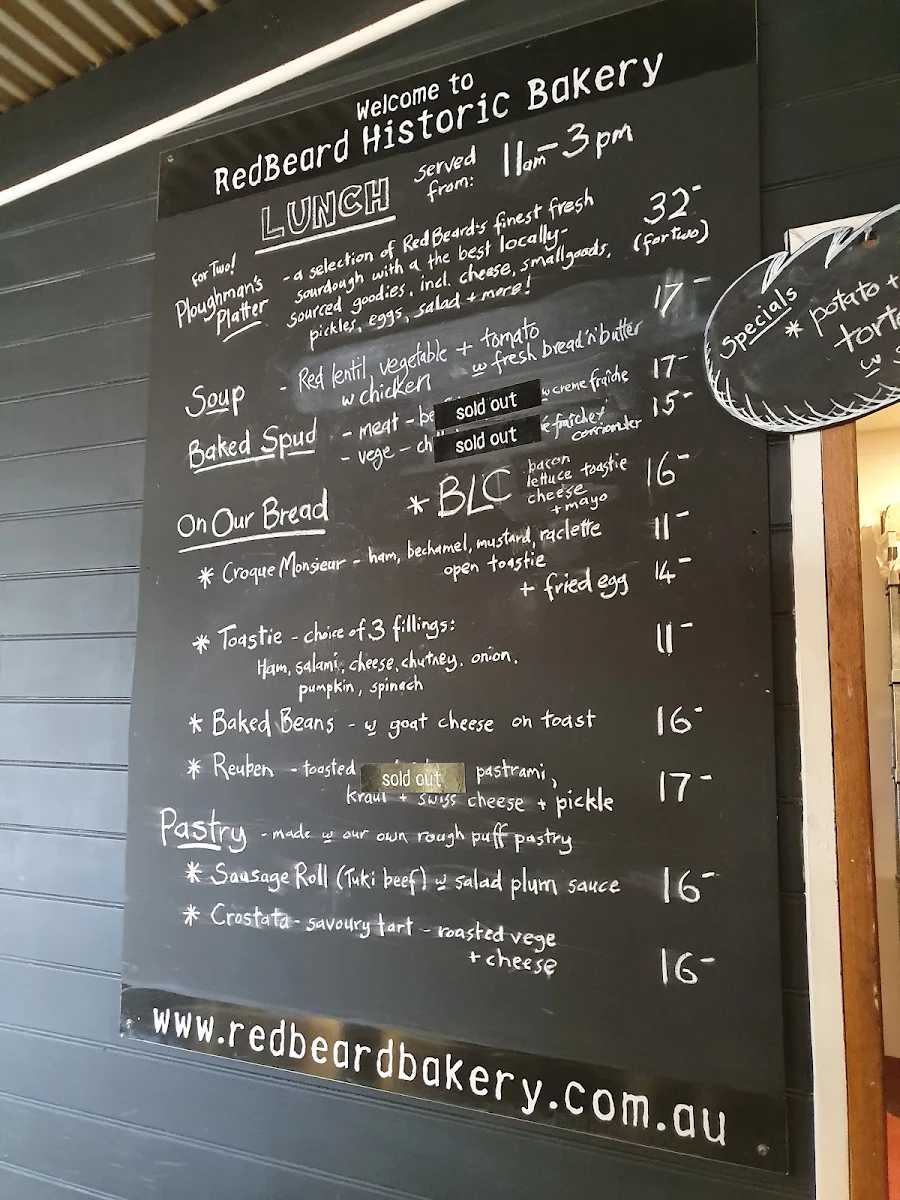 Welcome to
RedBeard Historic Bakery
LUNCH served from: 11am-3pm
for Two!
Ploughman's Platter
- a selection of RedBeard's finest fresh
sourdough with a the best locally-
sourced goodies, incl. cheese, smallgoods,
pickles, eggs, salad + more!
32-
(for two)
Soup - Red lentil, vegetable + tomato 17-
w chicken w fresh bread'n'butter
Baked Spud - meat - sold out w creme fraîche 17-
- vege - sold out fraîche, coriander 15-
On Our Bread
* BLC bacon 16-
lettuce toastie
cheese
+ mayo
* Croque Monsieur - ham, bechamel, mustard, raclette 11-
open toastie
+ fried egg 14-
* Toastie - choice of 3 fillings: 11-
Ham, salami, cheese, chutney, onion,
pumpkin, spinach
* Baked Beans - w goat cheese on toast 16-
* Reuben - toasted sold out pastrami, 17-
kraut + swiss cheese + pickle
Pastry - made w our own rough puff pastry
* Sausage Roll (Tuki beef) w salad plum sauce 16-
* Crostata - savoury tart - roasted vege 16-
+ cheese
www.redbeardbakery.com.au
Specials
* potato +
w